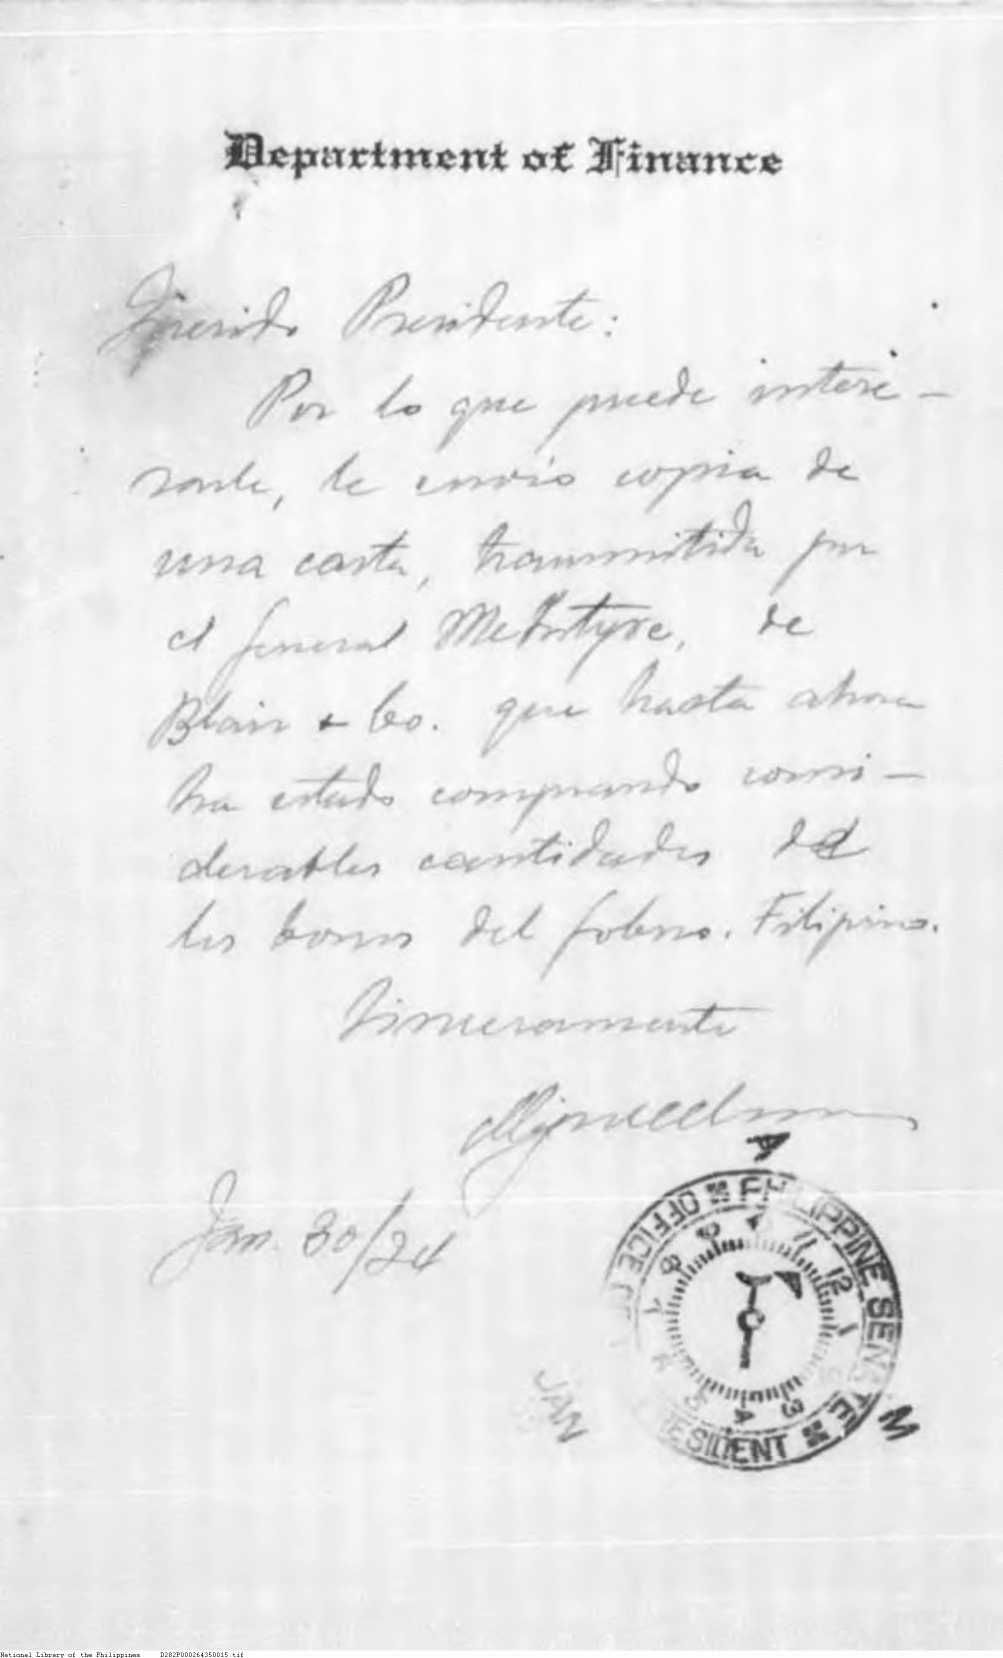 Department of Finance
Querido Presidente:
Por lo que puede intere-
sarle, le envío copia de
una carta, transmitida por
el general McIntyre, de
Blair & Co. que hasta ahora
ha estado comprando consi-
derables cantidades de
los bonos del Gobno. Filipino.
Sinceramente
Jan. 30/24
A
OFFICE OF PHILIPPINE SENATE
12
M
JAN
PRESIDENT
National Library of the Philippines D282P000264350015.tif